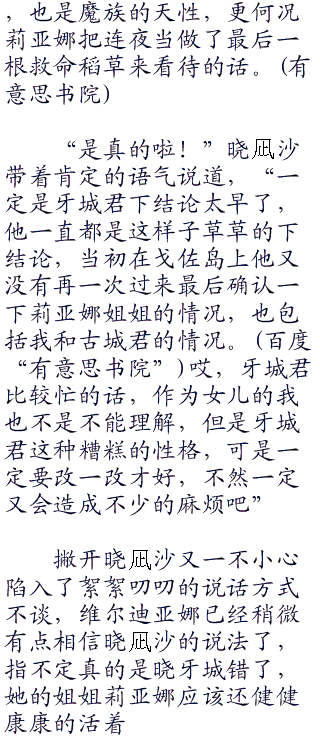 ，也是魔族的天性，更何况
莉亚娜把连夜当做了最后一
根救命稻草来看待的话。(有
意思书院)
“是真的啦！”晓凪沙
带着肯定的语气说道，“一
定是牙城君下结论太早了，
他一直都是这样子草草的下
结论，当初在戈佐岛上他又
没有再一次过来最后确认一
下莉亚娜姐姐的情况，也包
括我和古城君的情况。(百度
“有意思书院”)哎，牙城君
比较忙的话，作为女儿的我
也不是不能理解，但是牙城
君这种糟糕的性格，可是一
定要改一改才好，不然一定
又会造成不少的麻烦吧”
撇开晓凪沙又一不小心
陷入了絮絮叨叨的说话方式
不谈，维尔迪亚娜已经稍微
有点相信晓凪沙的说法了，
指不定真的是晓牙城错了，
她的姐姐莉亚娜应该还健健
康康的活着